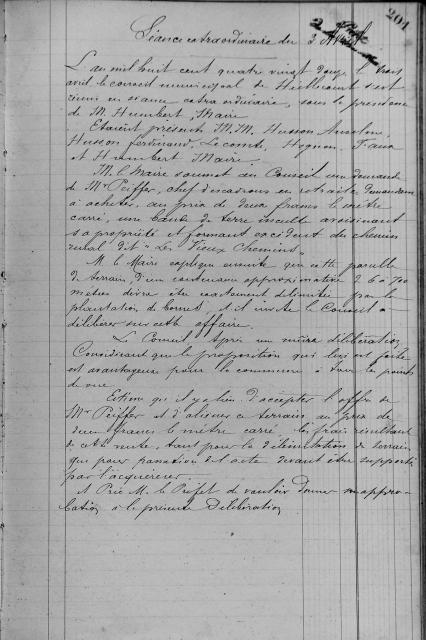 201
Séance extraordinaire du 3 Avril
L'an mil huit cent quatre vingt douze le trois
avril le conseil municipal de s'est
réuni en séance extraordinaire, sous la présidence
de M. Humbert, Maire
Etaient présents M.M. Husson Anselme,
Husson ferdinand, Lecomte, Hognon, Faux
et Humbert Maire.
M. le Maire soumet au Conseil une demande
de Mr Peiffer, chef d'escadrons en retraite demandant
à acheter, au prix de deux francs le mètre
carré, une bande de terre inculte avoisinant
sa propriété et formant excédent du chemin
rural dit "Les Vieux Chemins"
M. le Maire explique ensuite que cette parcelle
de terrain, d'une contenance approximative de 6 à 700
mètres devra être exactement délimitée par la
plantation de bornes, et il invite le Conseil à
délibérer sur cette affaire.
Le Conseil, Après en mûre délibération
Considérant que la proposition qui lui est faite
est avantageuse pour la commune à tous les points
de vue
Estime qu'il y a lieu d'accepter l'offre de
Mr Peiffer et d'aliéner ce terrain au prix de
deux francs le mètre carré. les frais résultant
de cette vente, tant pour la délimitation du terrain,
que pour passation de l'acte devant être supportés
par l'acquéreur.
Et Prie M. le Préfet de vouloir donner son appro-
bation à la présente Délibération